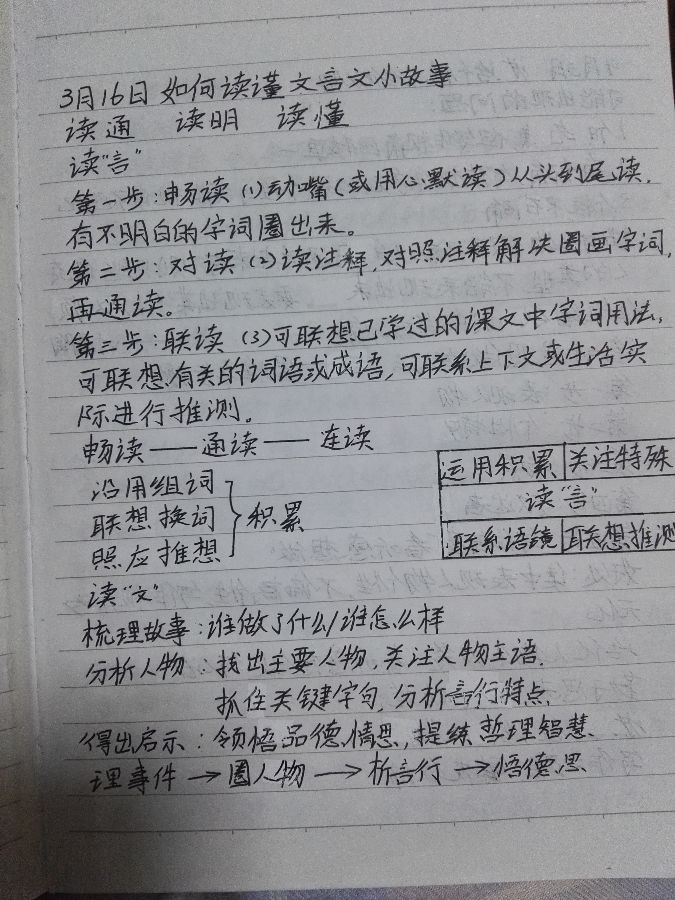 3月16日 如何读谨文言文小故事
读通 读明 读懂
读“言”
第一步：畅读 (1)动嘴(或用心默读)从头到尾读，
有不明白的字词圈出来。
第二步：对读 (2)读注释，对照注释解决圈画字词，
再通读。
第三步：联读 (3)可联想已学过的课文中字词用法，
可联想有关的词语或成语，可联系上下文或生活实
际进行推测。
畅读——通读——连读
沿用组词
联想换词
照应推想
积累
运用积累 关注特殊
读“言”
联系语镜 联想推测
读“文”
梳理故事：谁做了什么/谁怎么样
分析人物：找出主要人物，关注人物主语.
抓住关键字句，分析言行特点.
得出启示：领悟品德情思，提练哲理智慧.
理事件→圈人物→析言行→悟德思